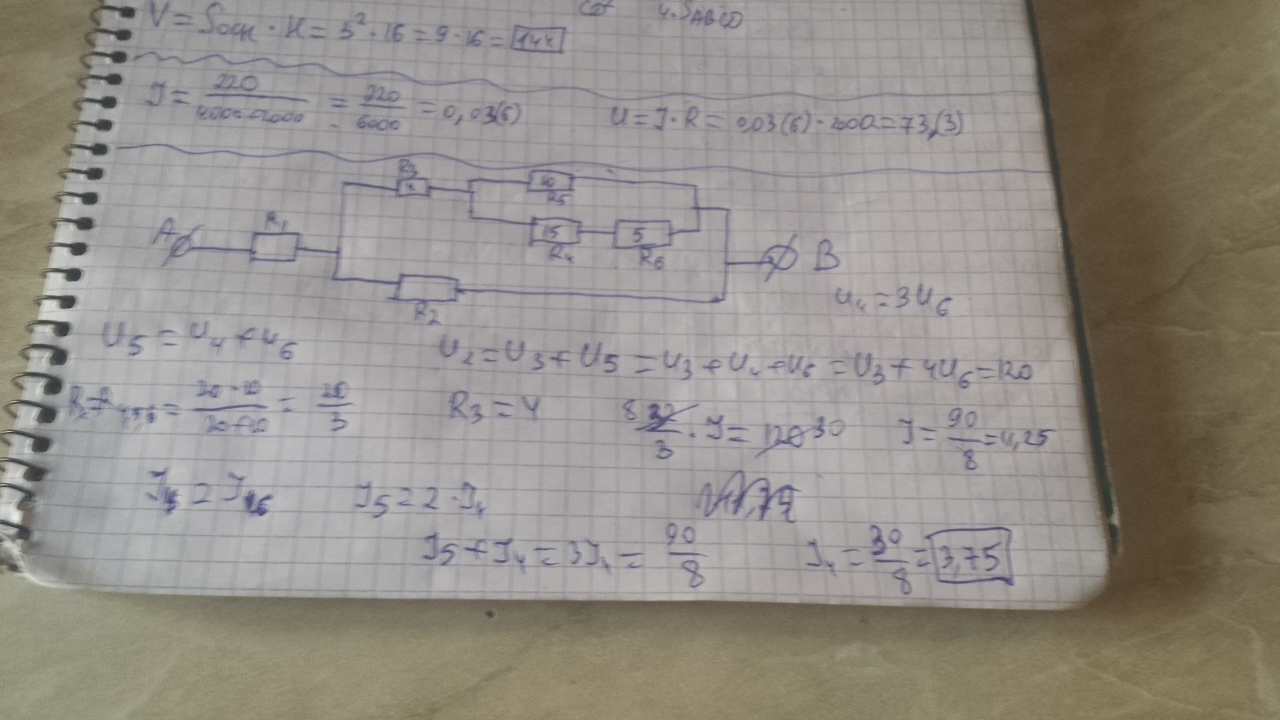 V = Sосн · H = 3² · 16 = 9 · 16 = 144
4·SABCD
I = 220 / 4000+2000 = 220 / 6000 = 0,03(6) U = I · R = 0,03(6) · 2000 = 73,(3)
R3 4
10 R5
A R1
15 R4 5 R6
B
R2
U4 = 3U6
U5 = U4 + U6 U2 = U3 + U5 = U3 + U4 + U6 = U3 + 4U6 = 120
= 20 · 10 / 20+10 = 20 / 3 R3 = 4 8 32 / 3 · I = 120 30 I = 90 / 8 = 4,25
I5 = 2 · I4
I5 + I4 = 3I4 = 90 / 8 I4 = 30 / 8 = 3,75